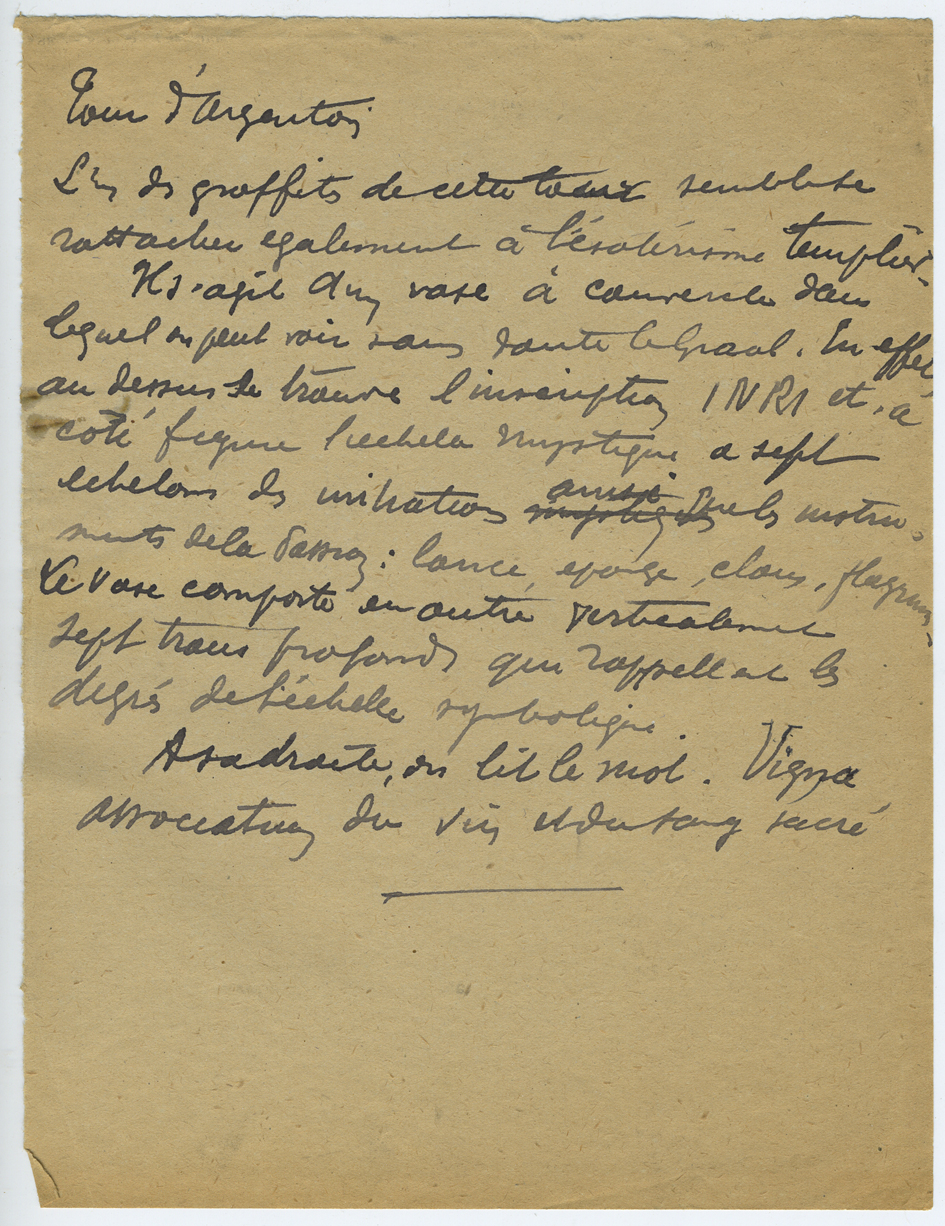 Tour d'Argenton
L'un des graffits de cette tour semble se
rattacher egalement à l'ésotérisme templier.
Il s'agit d'un vase à couvercle dans
lequel on peut voir sans doute le Graal. En effet
au dessus se trouve l'inscription INRI et, à
coté figure l'echelle mystique a sept
echelons des initiations aussi que les instru-
ments de la Passion : lance, eponge, clous, flagrum.
Le vase comporte en outre verticalement
sept trous profonds qui rappellent les
degrés de l'échelle symbolique.
A sa droite, on lit le mot. Vigna
association du vin et du sang sacré